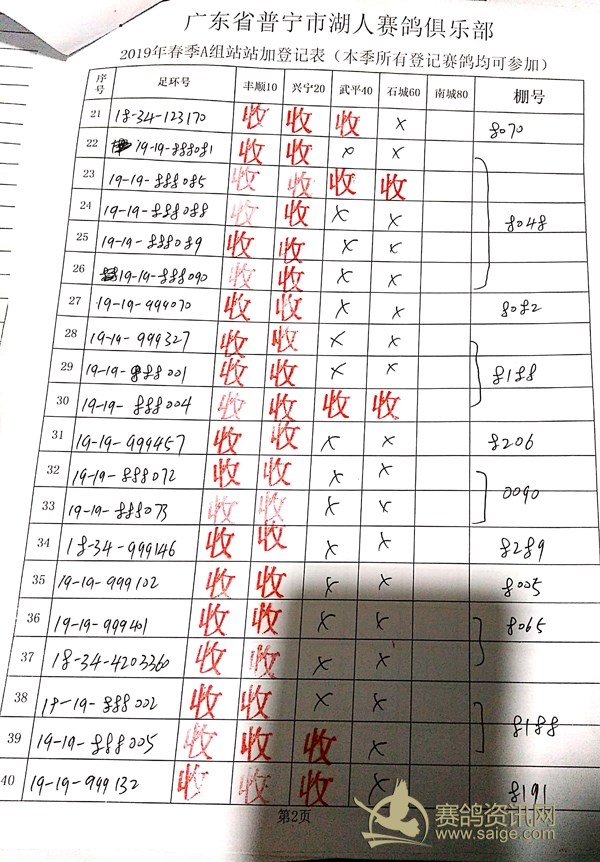 广东省普宁市湖人赛鸽俱乐部
2019年春季A组站站加登记表（本季所有登记赛鸽均可参加）
序号 足环号 丰顺10 兴宁20 武平40 石城60 南城80 棚号
21 18-34-123170 收 收 收 × 8070
22 19-19-888081 收 收 × ×
23 19-19-888085 收 收 收 收
24 19-19-888088 收 收 × × 8048
25 19-19-888089 收 收 × ×
26 19-19-888090 收 收 × ×
27 19-19-999070 收 收 × × 8082
28 19-19-999327 收 收 × ×
29 19-19-888001 收 收 × × 8188
30 19-19-888004 收 收 收 收
31 19-19-999457 收 收 × × 8206
32 19-19-888072 收 收 × × 0090
33 19-19-888073 收 收 × ×
34 18-34-999146 收 收 × × 8289
35 19-19-999102 收 收 × × 8005
36 19-19-999401 收 收 × × 8065
37 18-34-4203360 收 收 × ×
38 18-19-888002 收 收 × × 8188
39 19-19-888005 收 收 收 ×
40 19-19-999132 收 收 收 × 8191
第2页
赛鸽资讯网
www.saige.com